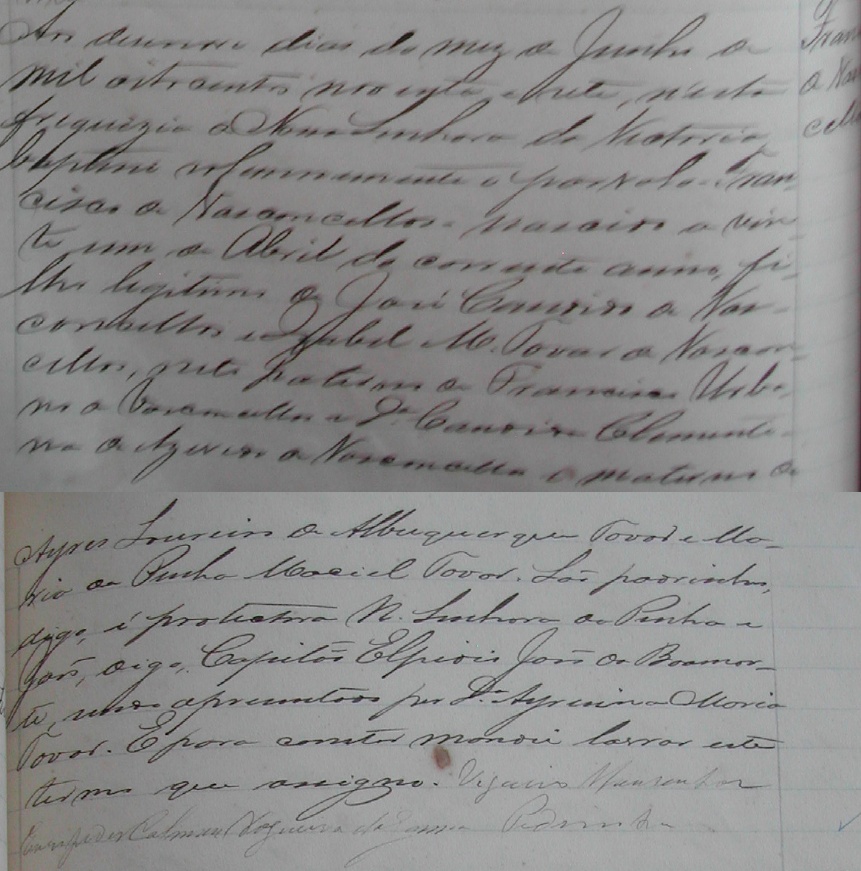 Aos desenove dias do mez de Junho de
mil oitocentos noventa e sete, n'esta
freguezia de Nossa Senhora da Victoria
baptisei solemnemente o parvolo Fran-
cisco de Vasconcellos nascido a vin-
te um de Abril do corrente anno, fi-
lho legitimo de José Candido de Vas-
concellos e Izabel M. Tovar de Vascon-
cellos, neto paterno de Francisco Urba-
no de Vasconcellos e Da. Candida Clementi-
na de Azevedo de Vasconcellos e materno de
Ayres Loureiro de Albuquerque Tovar e Ma-
ria da Penha Maciel Tovar. São padrinhos,
digo, é protectora N. Senhora da Penha e
José, digo, Capitão Elpidio José da Boamor-
te, sendo apresentado por Da. Ayresina Maria
Tovar. E para constar mandei lavrar este
termo que assigno. Vigario Monsenhor
Euripedes Calmon Nogueira da Gama Pedrinha
Fran